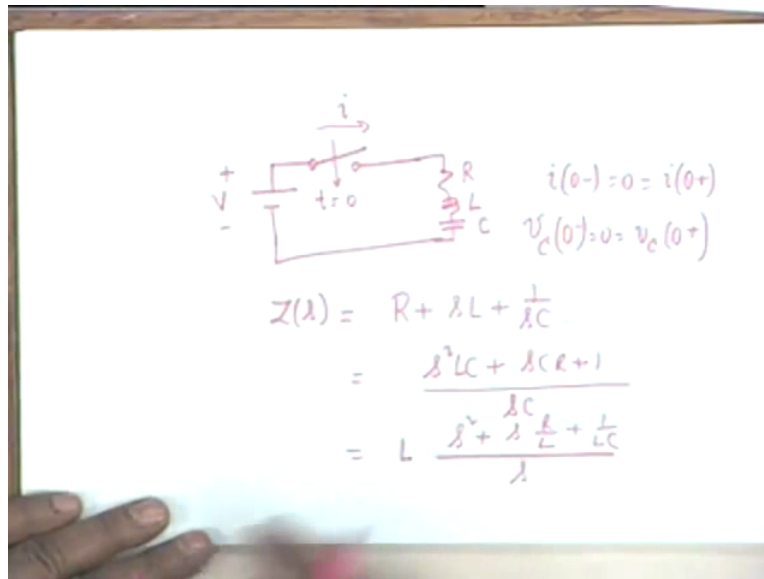 i
+
V
-
t=0
R
L
C
i(0-)=0 = i(0+)
v_c(0-)=0= v_c(0+)
Z(s) = R + sL + 1/sC
= (s²LC + sCR+1)/sC
= L (s² + s R/L + 1/LC)/s